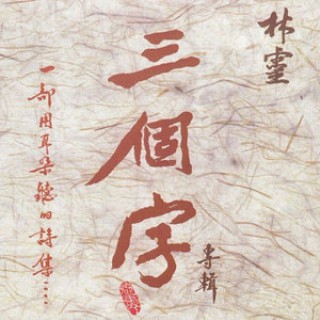 林靈
三個字
專輯
一部用耳朵聽的詩集……